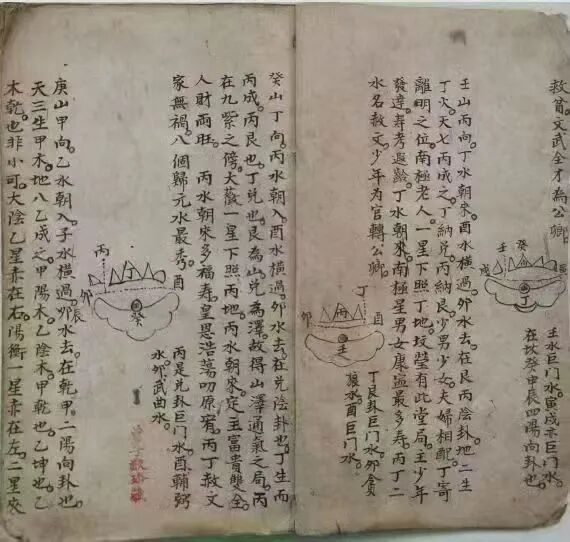 文武全才為公卿。
癸
壬
戌
丁
壬水巨門水。寅戌亦巨門水。
在坎癸申辰四陽向卦也。
壬山丙向。丁水朝來。酉水橫過。卯水去。在艮丙陰卦地。二生
丁火。天七丙成之。丁納兌。丙納艮。少男少女。夫婦相配。丁寄
離明之位。南極老人一星下照丁地。坟塋有此堂局。主少年
發達。壽考遐齡。丁水朝來。南極星男女康寧最多壽。丙丁二
水名赦文。少年为官轉公卿。
丁
丙
酉
卯
壬
丁艮卦巨門水。卯貪
狼水。酉巨門水。
癸山丁向。丙水朝入。酉水橫過。卯水去。在兌陰卦也。丁生而
丙成。丙艮也。丁兌也。艮為山。兌為澤。故得山澤通氣之局。丙
在九紫之傍。大薇一星下照丙地。丙水朝來。定主富貴雙全。
人財兩旺。丙水朝來多福壽。皇恩浩蕩叨原宥。丙丁赦文
家無禍。八個歸元水最秀。
丙
丁
酉
卯
辰
癸
丙是兌卦巨門水。酉輔弼
水。卯武曲水。
庚山甲向。乙水朝入。子水橫過。卯水去。在乾甲。二陽向卦也。
天三生甲木。地八乙成之。甲陽木。乙陰木。甲乾也。乙坤也。乙
木乾也。非小可。大陰乙星亦在右。陽衡一星亦在左。二星夾